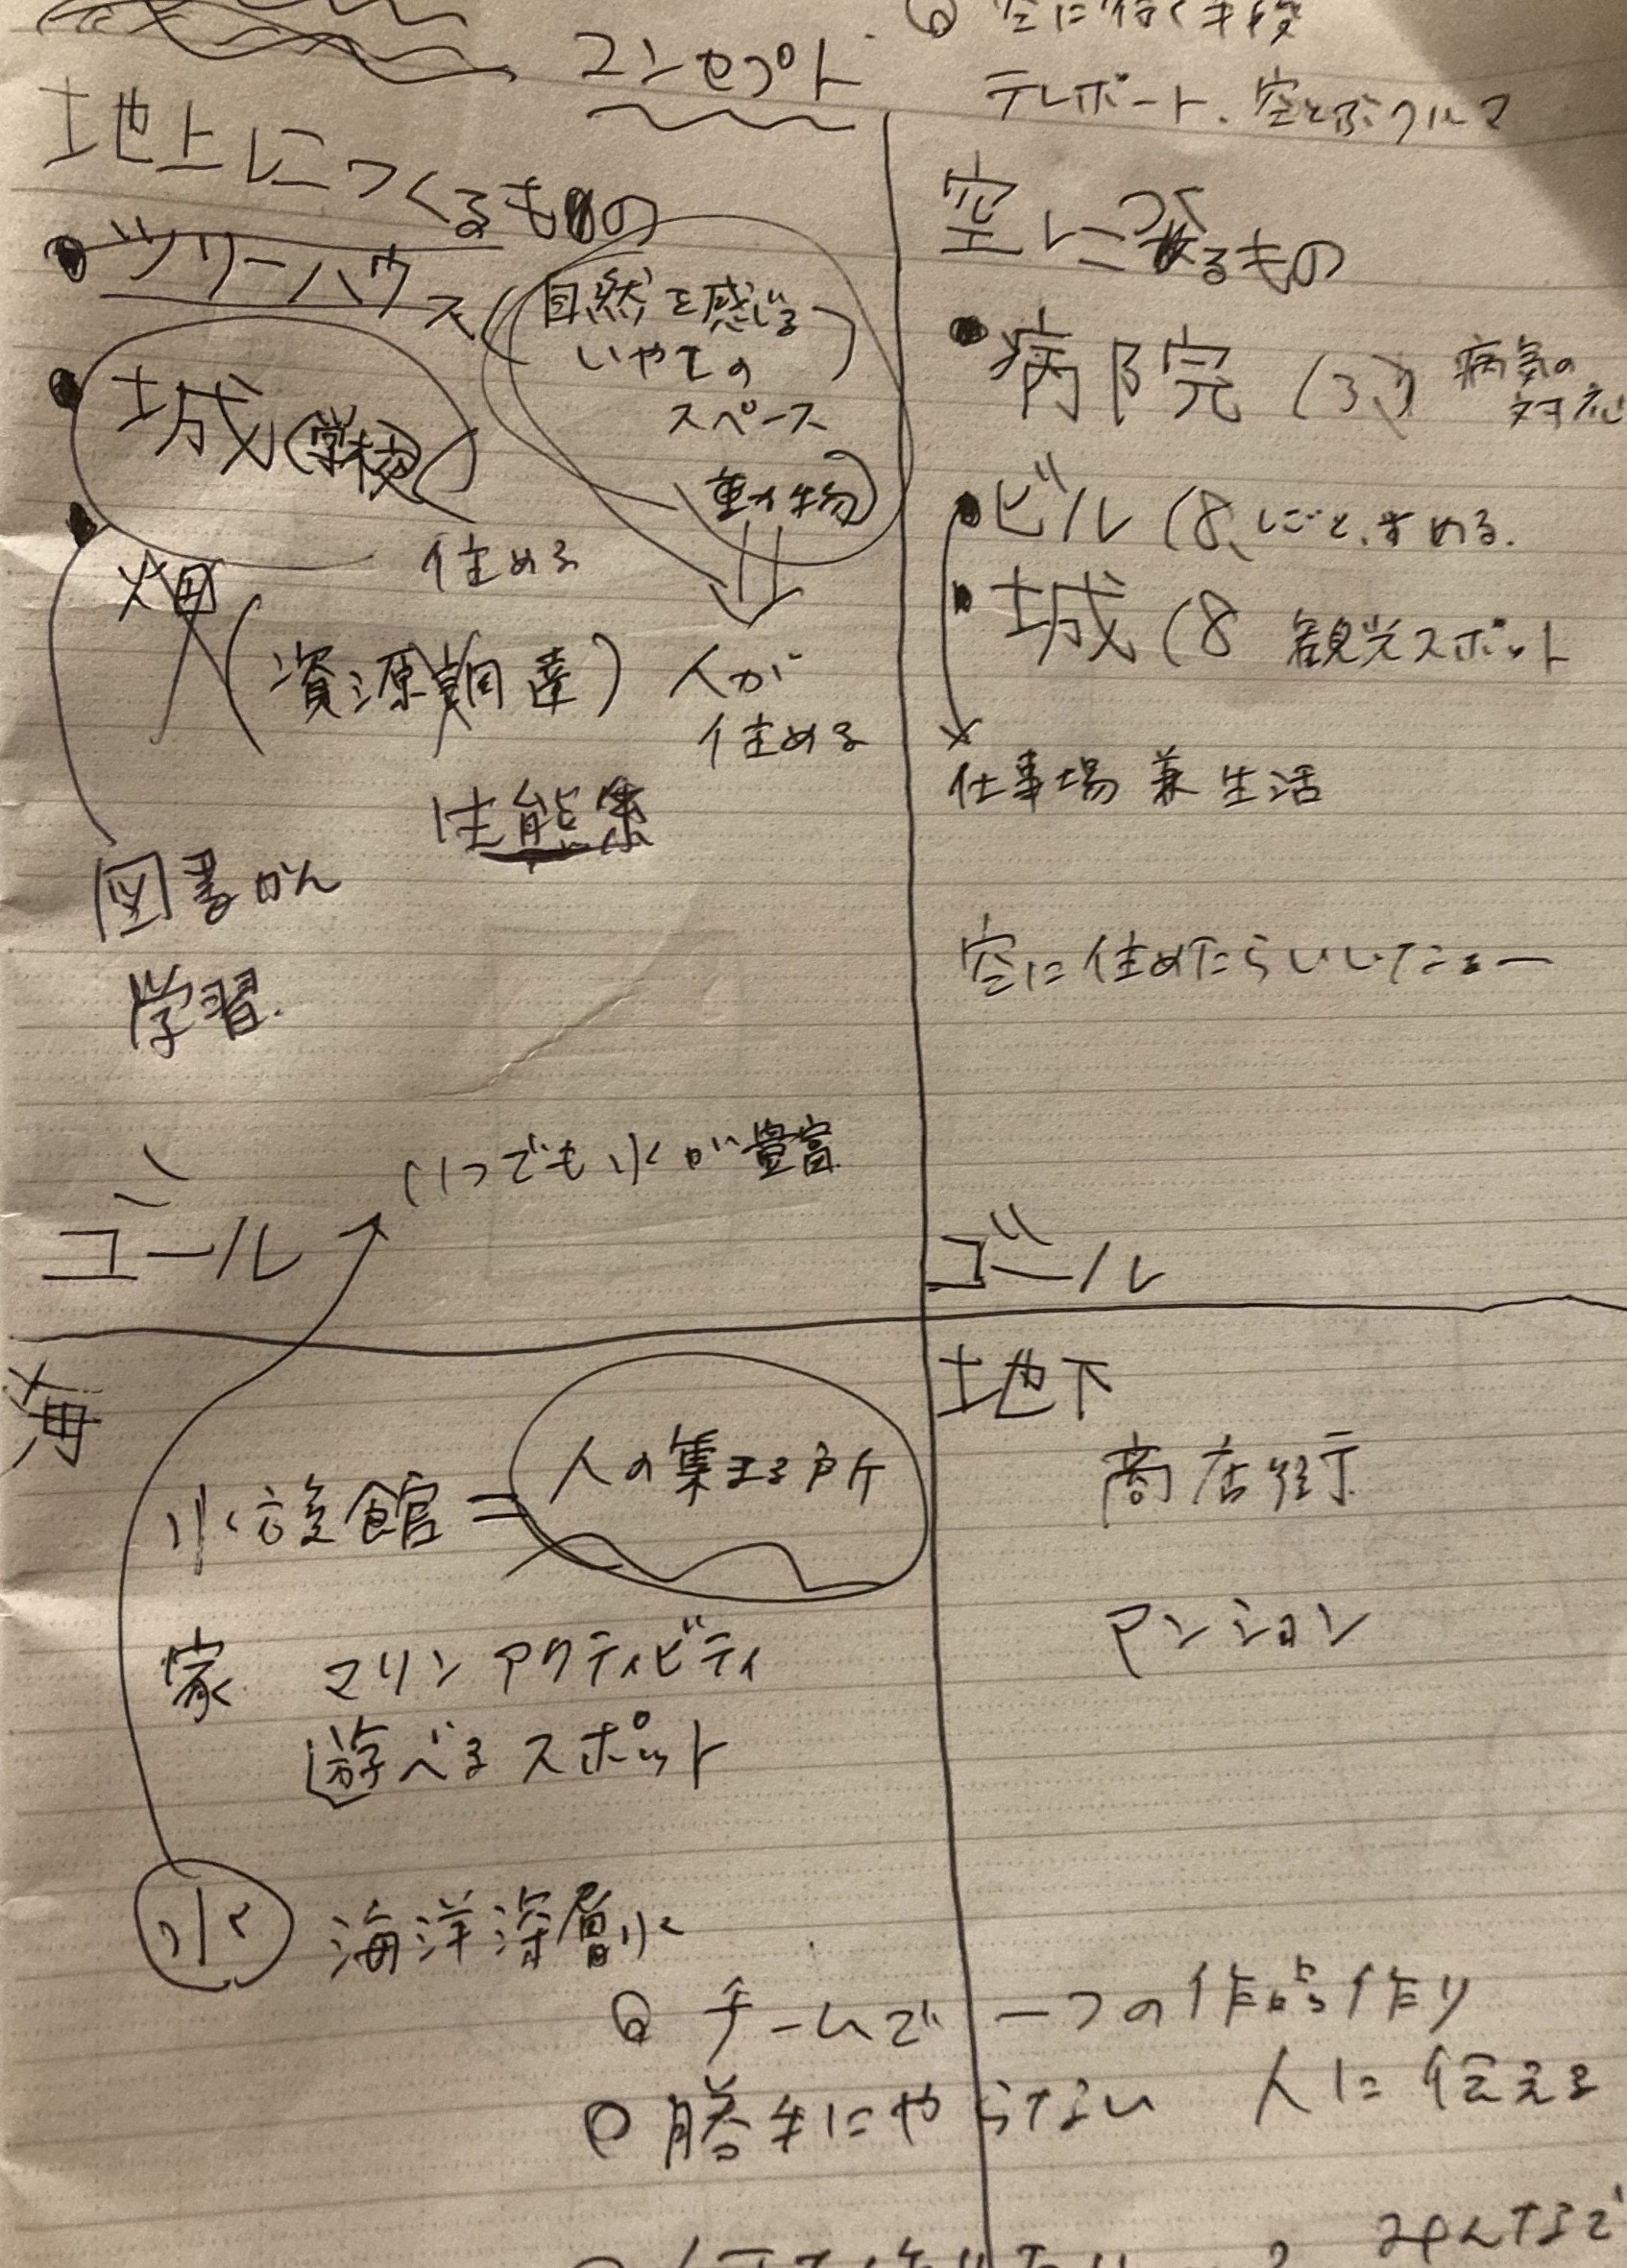 コンセプト
空に行く手段
テレポート、空とぶクルマ
地上につくるもの
・ツリーハウス(自然を感じる
いやしの
スペース
動物)
人が
住める
・城(学校)
住める
・畑(資源調達)
性態系
図書かん
学習.
いつでも水が豊富
ゴール
空に
るもの
・病院(3、)病気の
対応
・ビル(8、しごと、すめる.
・城(8 観光スポット
仕事場 兼 生活
空に住めたらいい
ゴール
海
水族館=人の集まる所
家 マリンアクティビティ
遊べるスポット
水 海洋深層水
地下
商店街
マンション
チームで一つの作品作り
勝手にやらない 人に伝える
みんなで